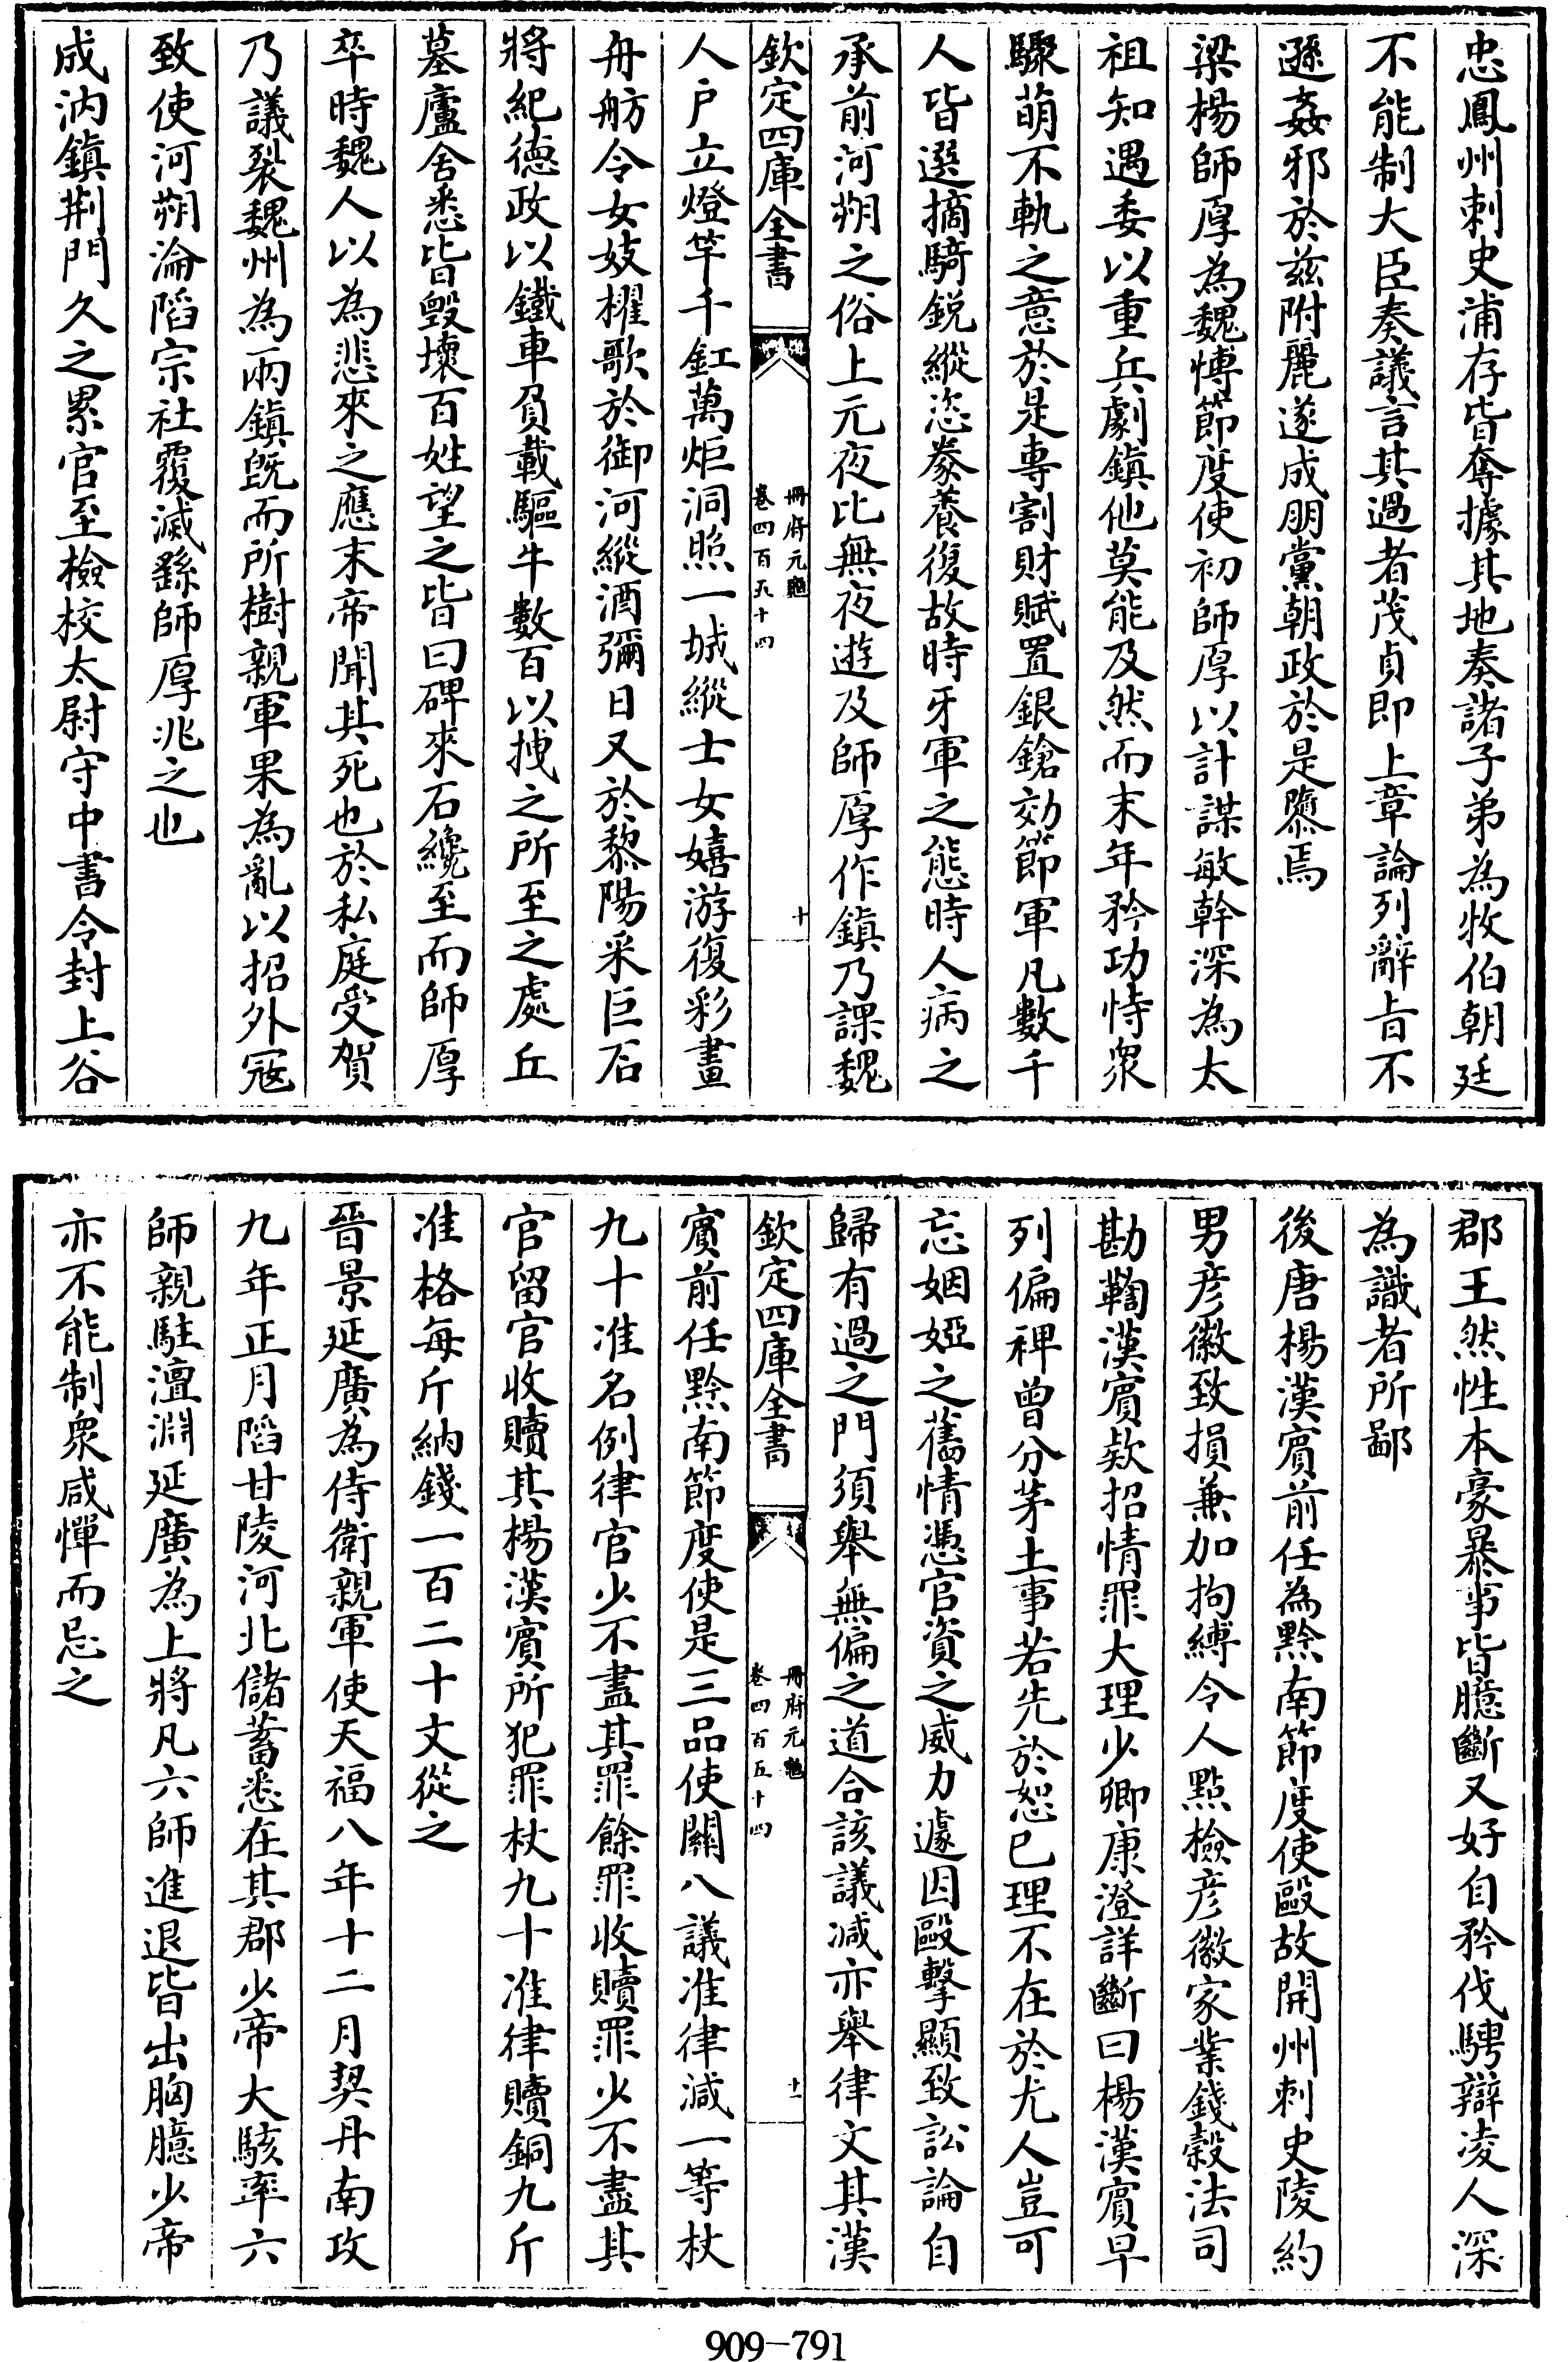 忠鳳州刺史浦存皆奪據其地奏諸子弟為牧伯朝廷
不能制大臣奏議言其過者茂貞即上章論列辭㫖不
遜姦邪於兹附麗遂成朋黨朝政於是隳焉
梁楊師厚為魏愽節度使初師厚以計謀敏幹深為太
祖知遇委以重兵劇鎮他莫能及然而末年矜功恃衆
驟萌不軌之意於是專割財賦置銀鎗効節軍凡數千
人皆選摘騎鋭縱恣豢養復故時牙軍之態時人病之
承前河朔之俗上元夜比無夜遊及師厚作鎮乃課魏
欽定四庫全書
冊府元龜
卷四百五十四
十
人戶立燈竿千釭萬炬洞照一城縱士女嬉游復彩畫
舟舫令女妓櫂歌於御河縱酒彌日又於黎陽采巨石
將紀德政以鐵車負載驅牛數百以拽之所至之處丘
墓廬舍悉皆毀壞百姓望之皆曰碑來石纔至而師厚
卒時魏人以為悲來之應末帝聞其死也於私庭受賀
乃議裂魏州為兩鎮旣而所樹親軍果為亂以招外寇
致使河朔淪陷宗社覆滅繇師厚兆之也
成汭鎮荆門久之累官至檢校太尉守中書令封上谷
郡王然性本豪暴事皆臆斷又好自矜伐騁辯凌人深
為識者所鄙
後唐楊漢賓前任為黔南節度使毆故開州刺史陵約
男彦徽致損兼加拘縛令人點檢彦徽家業錢穀法司
勘鞫漢賓欵招情罪大理少卿康澄詳斷曰楊漢賓早
列偏裨曾分茅土事若先於恕巳理不在於尤人豈可
忘姻婭之舊情憑官資之威力遽因毆擊顯致訟論自
歸有過之門須舉無偏之道合該議减亦舉律文其漢
欽定四庫全書
冊府元龜
卷四百五十四
十一
賓前任黔南節度使是三品使關八議准律減一等杖
九十准名例律官少不盡其罪餘罪收贖罪少不盡其
官留官收贖其楊漢賓所犯罪杖九十准律贖銅九斤
准格每斤納錢一百二十文從之
晉景延廣為侍衛親軍使天福八年十二月契丹南攻
九年正月陷甘陵河北儲蓄悉在其郡少帝大駭率六
師親駐澶淵延廣為上將凡六師進退皆出胸臆少帝
亦不能制衆咸憚而忌之
909-791